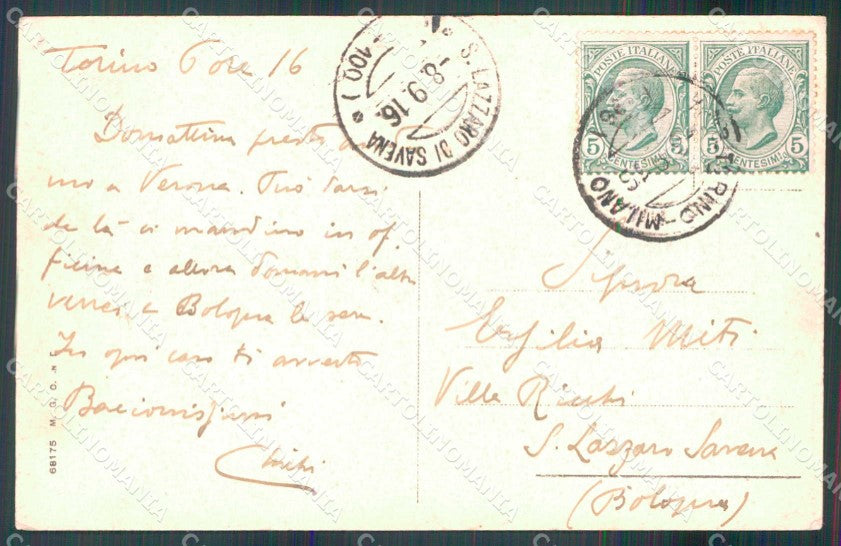 Torino ore 16
Domattina presto
mo a Verona. Può darsi
de là ci mandino in of.
ficina e allora domani l'altro
verrei a Bologna la sera.
In ogni caso ti avverto
Bacionissimi
N° S. LAZZARO DI SAVENA *
-8.9.16.
(100)
POSTE ITALIANE
5 CENTESIMI 5
POSTE ITALIANE
5 CENTESIMI 5
TORINO-MILANO
Signora
Miti
Villa Ricchi
S. Lazzaro Savena
(Bologna)
68175 M. G. O. N
CARTOLINOMANIA